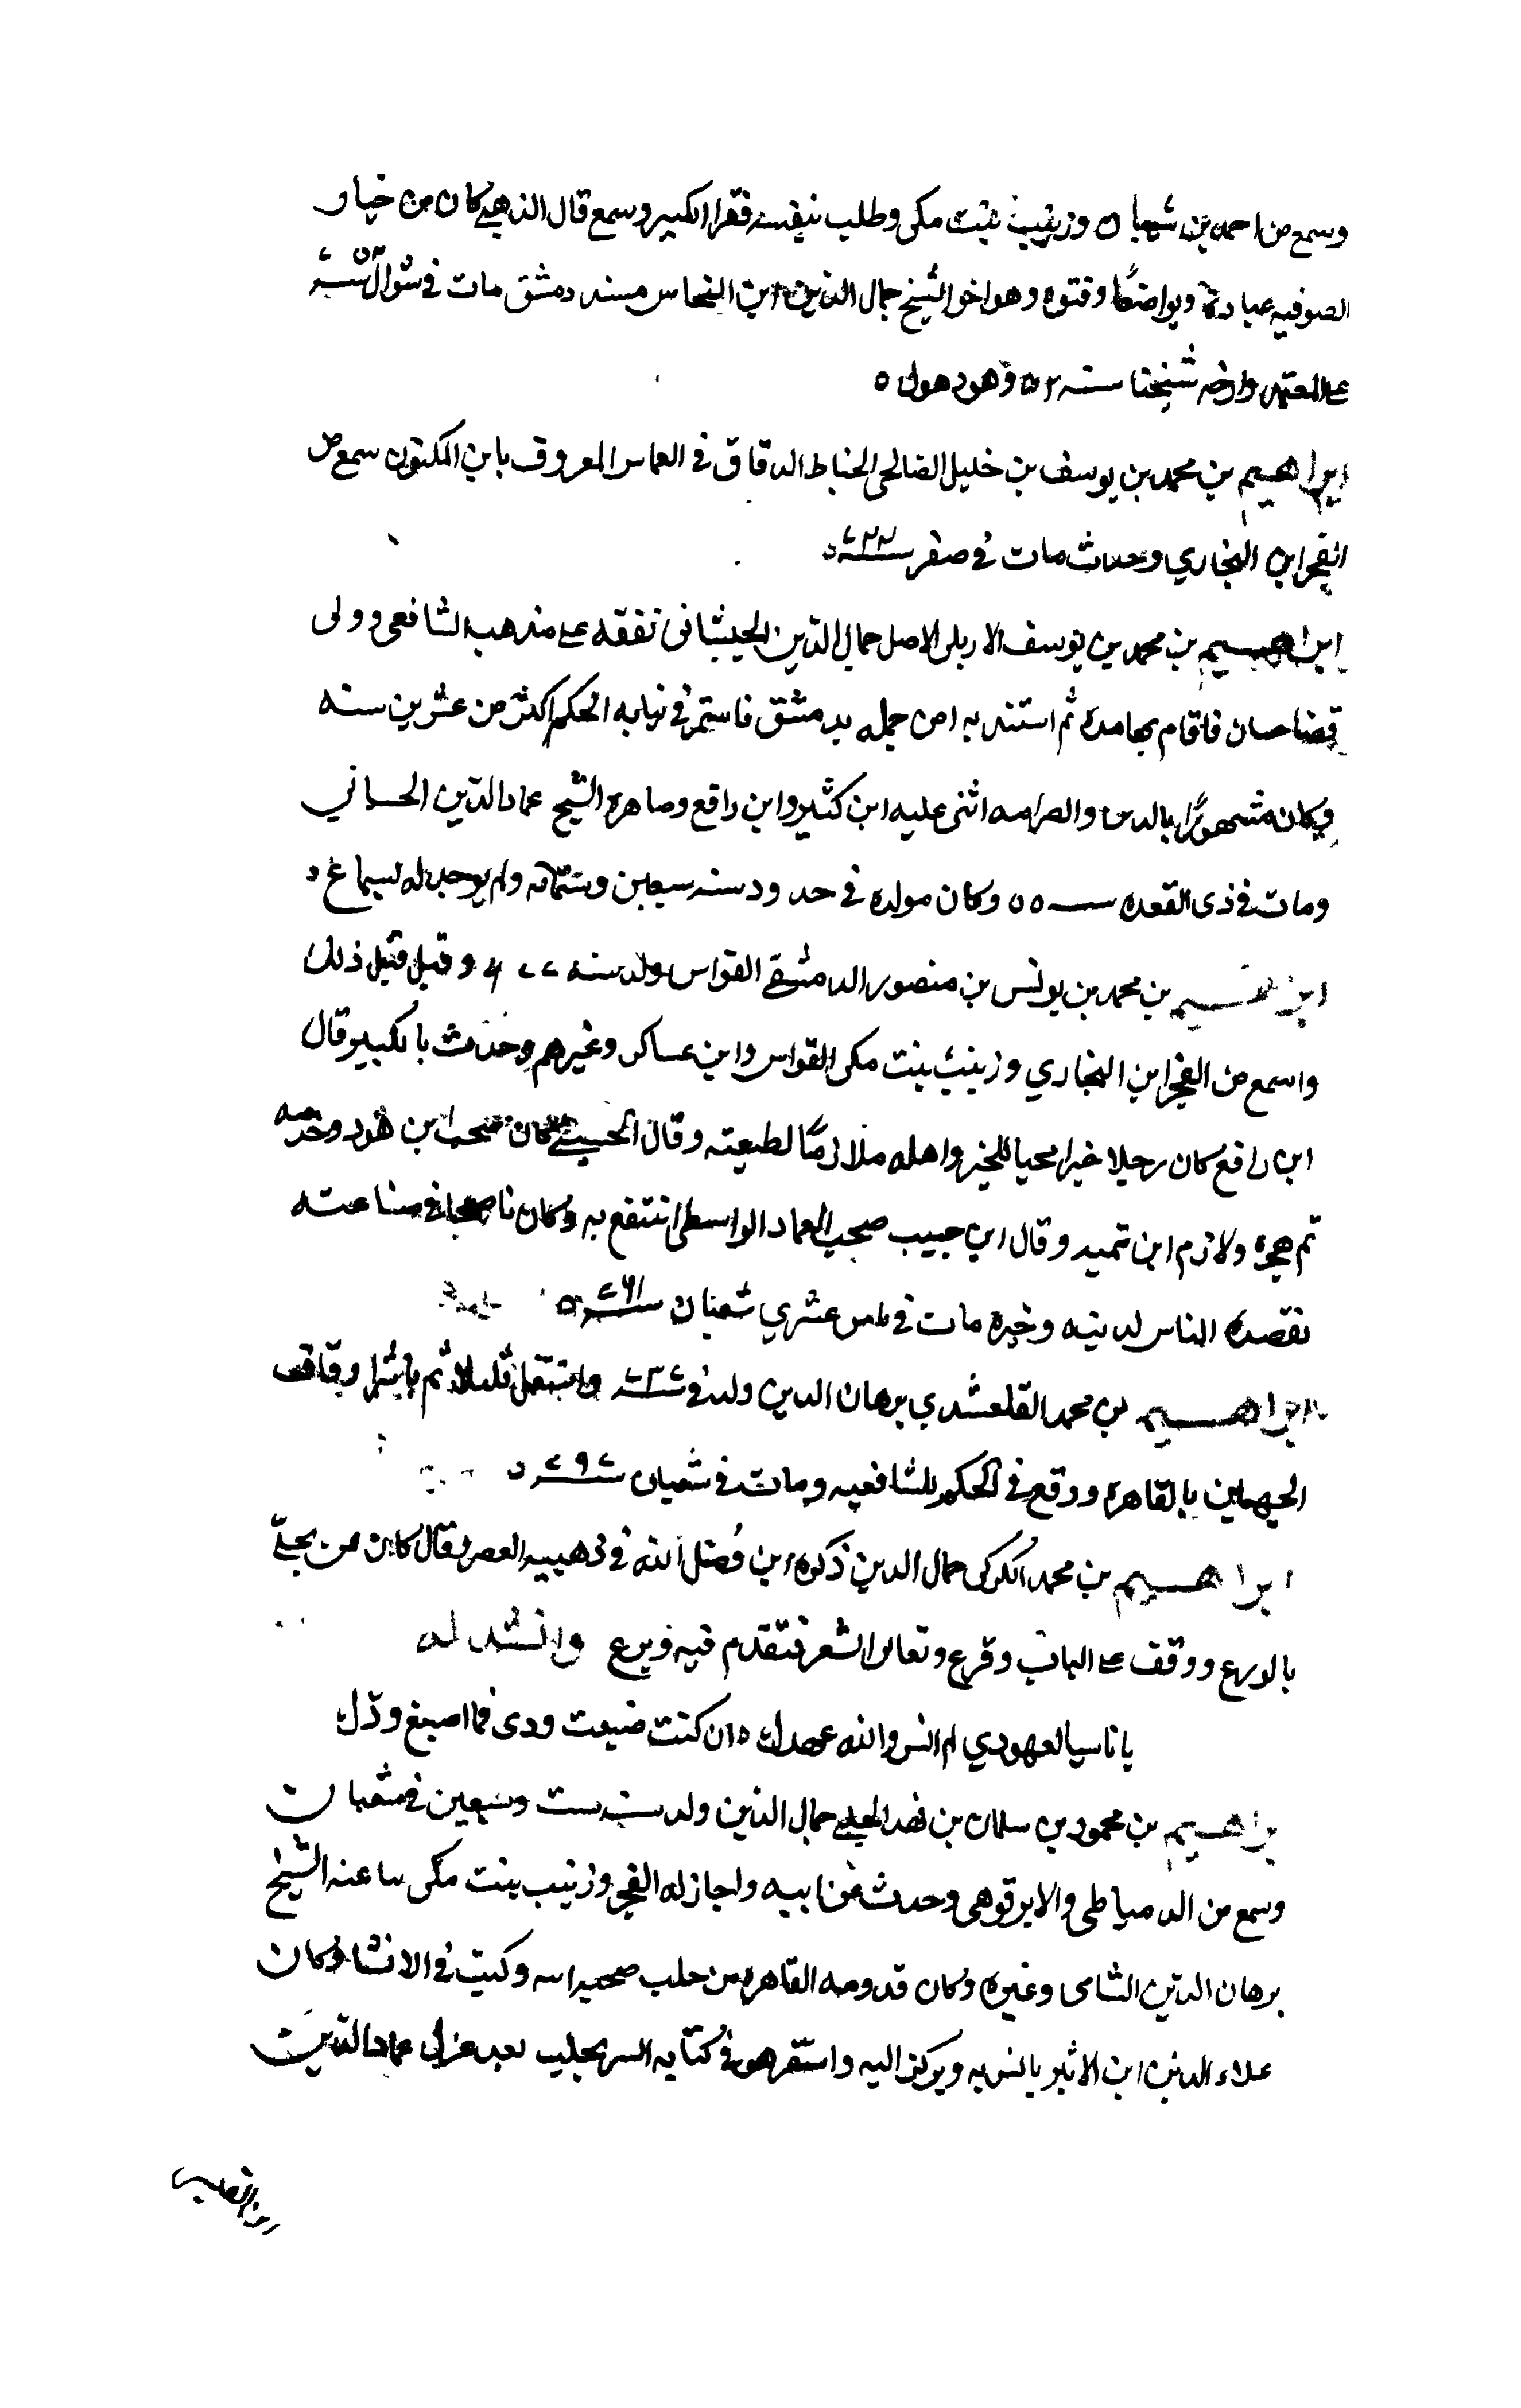 وسمع من احمد بن شيبان وزينب بنت مكى وطلب بنفسه فقرا الكبير وسمع قال الذهبي كان من خيار
الصوفيه عبادة وتواضعًا وفتوه وهو اخو الشيخ جمال الدين ابن النحاس مسند دمشق مات في شوال سنة
على المعتمد وارخه شيخنا سنه ٥٢ وهو ذهول ٥
ابراهيم بن محمد بن يوسف بن خليل الصالحى الخياط الدقاق في القماش المعروف بابن المكتوب سمع من
الفخر ابن البخاري وحدث مات في صفر سنة ٧٣٣
ابراهيم بن محمد بن يوسف الاربلى الاصل جمال الدين الحسبانى تفقه على مذهب الشافعى وولى
قضا حسبان فاقام بها مدة ثم استنابه ابن جمله بدمشق فاستمر في نيابه الحكم اكثر من عشرين سنه
وكان مشهورًا بالدين والصرامه اثنى عليه ابن كثير وابن رافع وصاهره الشيخ عماد الدين الحسباني
ومات في ذى القعده سنة ٥٥ وكان مولده في حدود سنه سبعين وستمائه ولم يوجد له سماع
ابراهيم بن محمد بن يونس بن منصور الدمشقي القواس ولد سنه ٦٧٧ او قبل قبيل ذلك
واسمع من الفخر ابن البخاري وزينب بنت مكى القواس وابن عساكر وغيرهم وحدث بالكبير وقال
ابن رافع كان رجلا خيرا محبا للخير واهله ملازمًا لطبعته وقال الحسيني كان صحب ابن هود وخدمه
ثم هجره ولازم ابن تميه وقال ابن حبيب صحب العماد الواسطى انتفع به وكان ناصحا في صناعته
نقصده الناس لدينه وخيره مات في عشري شعبان سنة ٧٦١
ابراهيم بن محمد القلقشندي برهان الدين ولد في سنة واشتغل قليلا ثم باشر اوقاف
الجهتين بالقاهره ووقع في الحكم للشافعيه ومات في شعبان سنة ٧٩٧
ابراهيم بن محمد الكركى جمال الدين ذكره ابن فضل الله في ذهبيه العصر فقال كان ممن يحلى
بالورع ووقف على الباب وقرع وتعانى الشعر فتقدم فيه وبرع وانشد له
يا ناسيا لعهودي لم انس والله عهدك ان كنت ضيعت ودى فما اضيع ودك
ابراهيم بن محمود بن سلمان بن فهد الحلبي جمال الدين ولد سنه ست وسبعين في شعبان
وسمع من الدمياطى والابرقوهى وحدث عن ابيه واجاز له الفخر وزينب بنت مكى ثنا عنه الشيخ
برهان الدين الشامى وغيره وكان قدومه القاهره من حلب صحبه ابيه وكتب في الانشا وكان
علاء الدين ابن الاثير يانس به ويركن اليه واستقر هو في كتابه السر بحلب بعد عزل عماد الدين
ابن القيسرانى